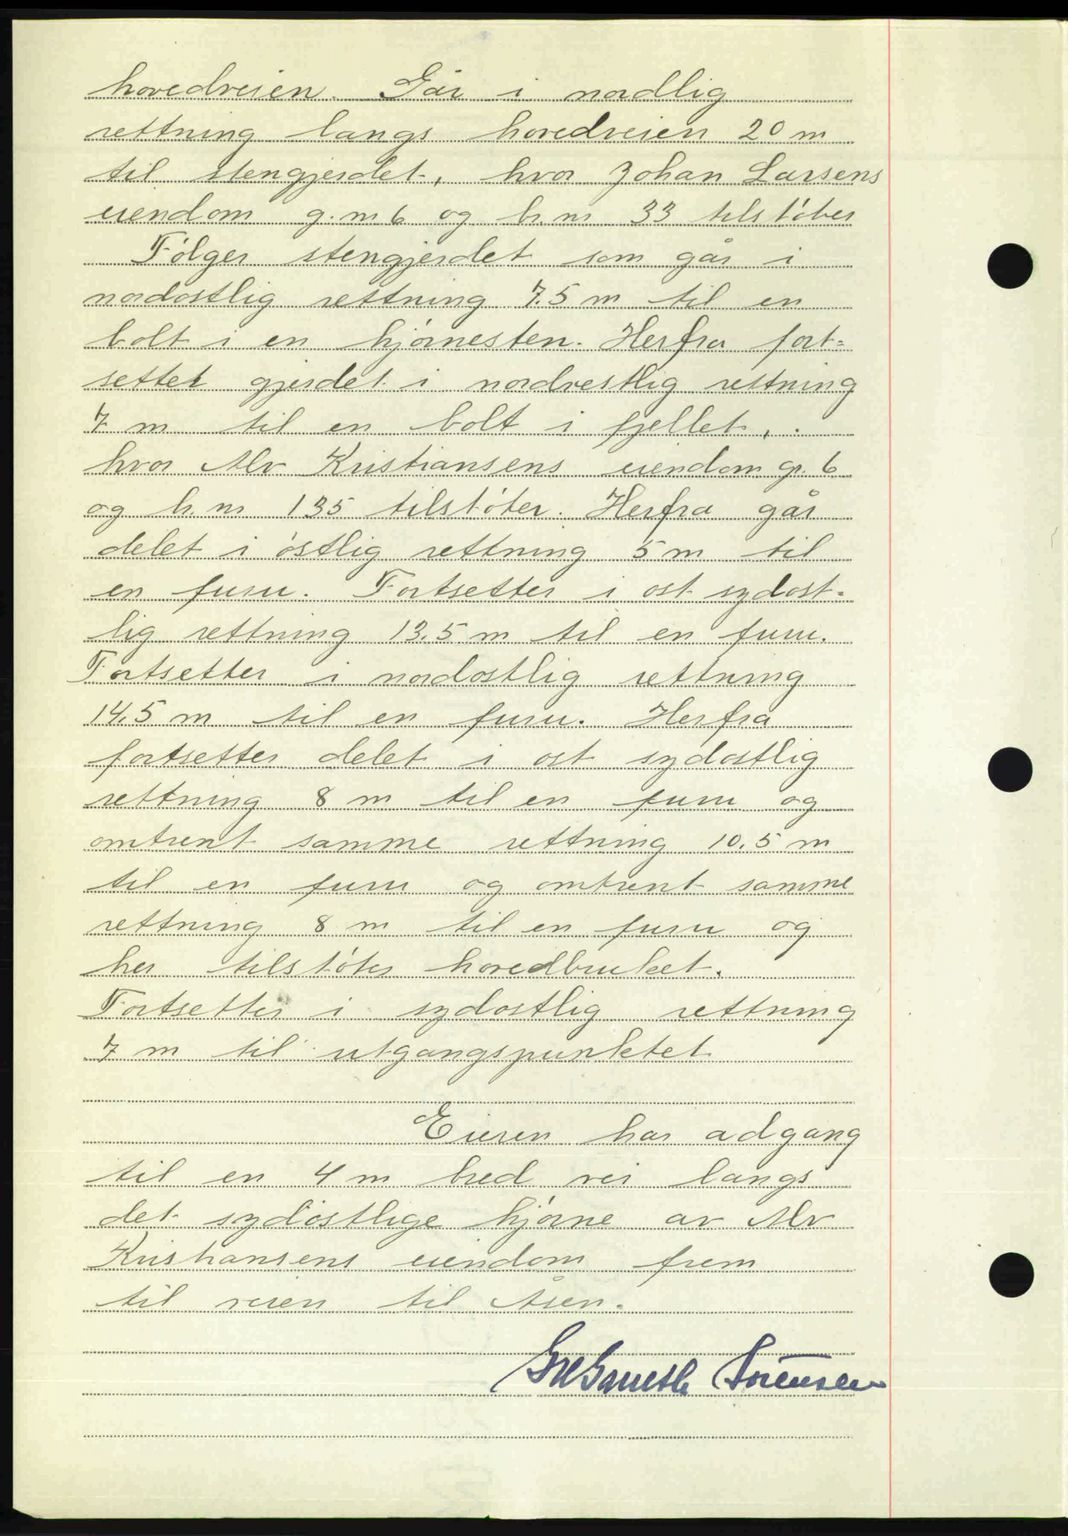 hovedveien. Går i nordlig
rettning langs hovedveien 20 m
til stengjerdet, hvor Johan Larsens
eiendom g.nr 6 og b.nr 33 tilstöter
Fölger stengjerdet som går i
nordostlig rettning 7.5 m til en
bolt i en hjörnesten. Herfra fort=
setter gjerdet i nordvestlig rettning
7 m til en bolt i fjellet,
hvor Alv Kristiansens eiendom gr. 6
og b.nr 135 tilstöter. Herfra går
delet i östlig rettning 5 m til
en furu. Fortsetter i ost sydost=
lig rettning 13.5 m til en furu.
Fortsetter i nordostlig rettning
14.5 m til en furu. Herfra
fortsetter delet i ost sydostlig
rettning 8 m til en furu og
omtrent samme rettning 10.5 m
til en furu og omtrent samme
rettning 8 m til en furu og
her tilstöter hovedbruket.
Fortsetter i sydostlig rettning
7 m til utgangspunktet
Eieren har adgang
til en 4 m bred vei langs
det sydöstlige hjörne av Alv
Kristiansens eiendom frem
til veien til Åsen.
Sörensen